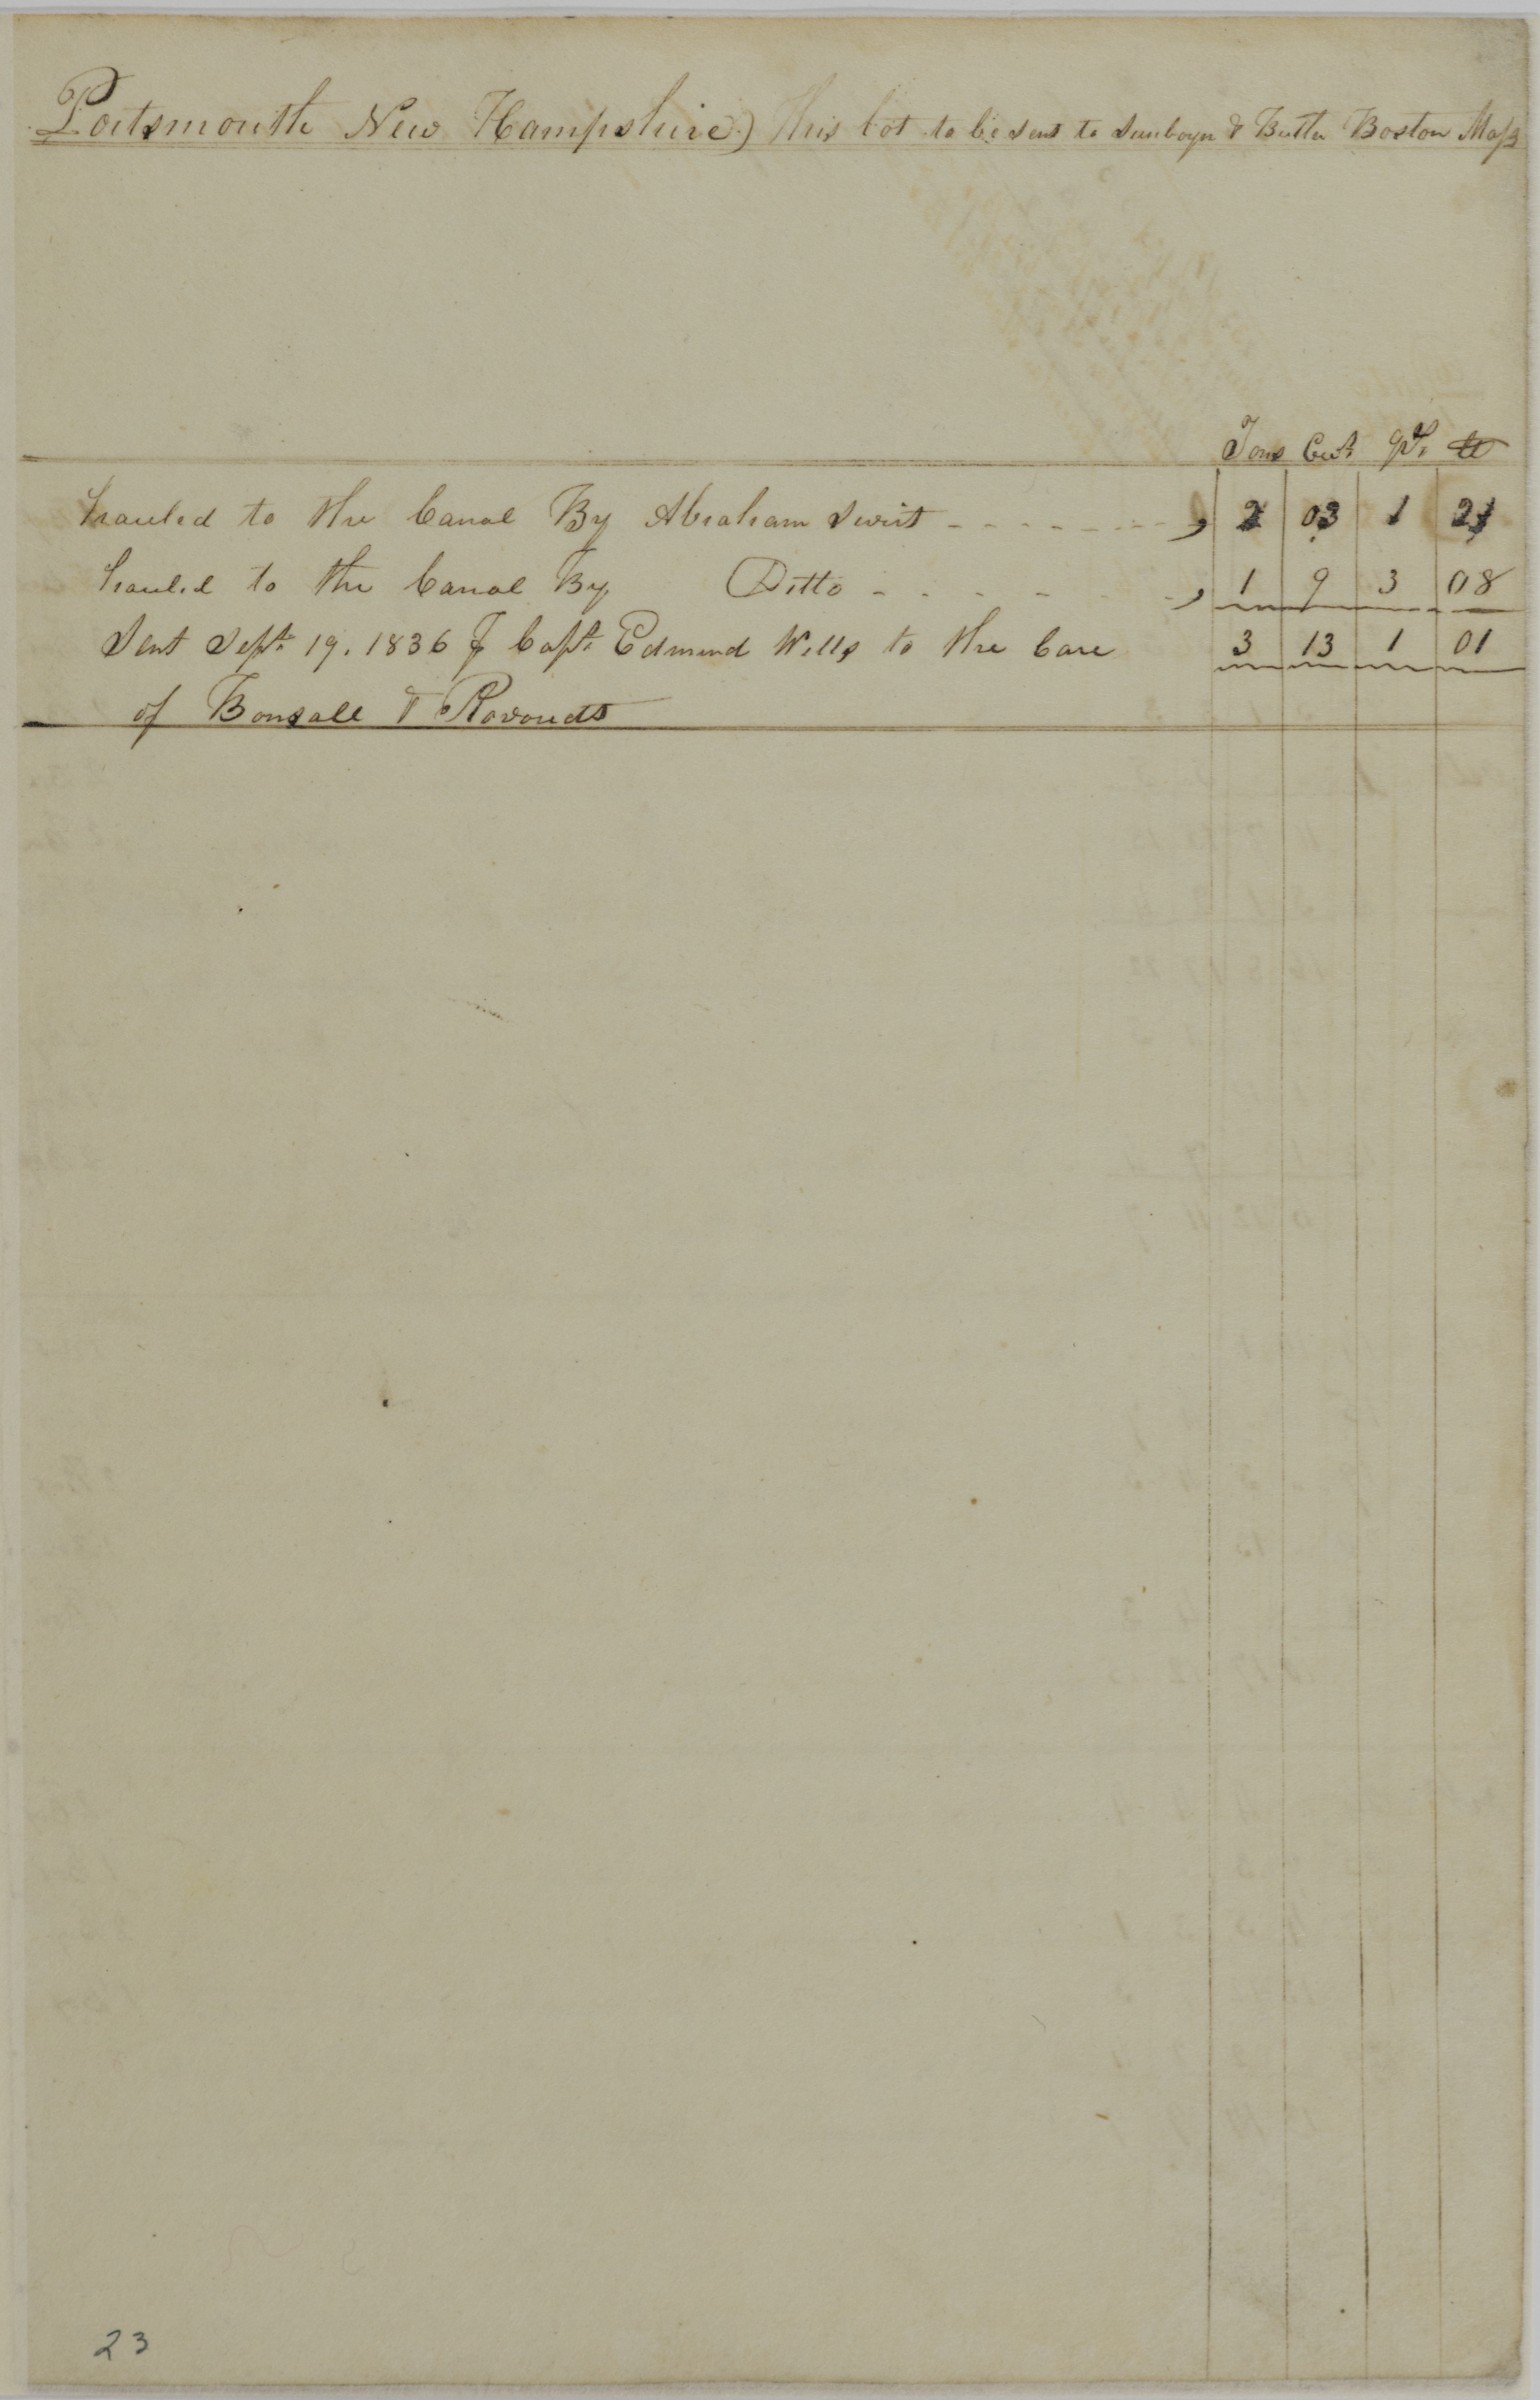 Portsmouth New Hampshire) This lot to be sent to & Butler Boston Mass
Tons Cwt qrs lb
Hauled to the Canal By Abraham Swist 2 03 1 21
Hauled to the Canal By Ditto 1 9 3 08
Sent Sept. 19. 1836 ⅌ Capt. Edmund Wills to the Care 3 13 1 01
of Bonsall &
23